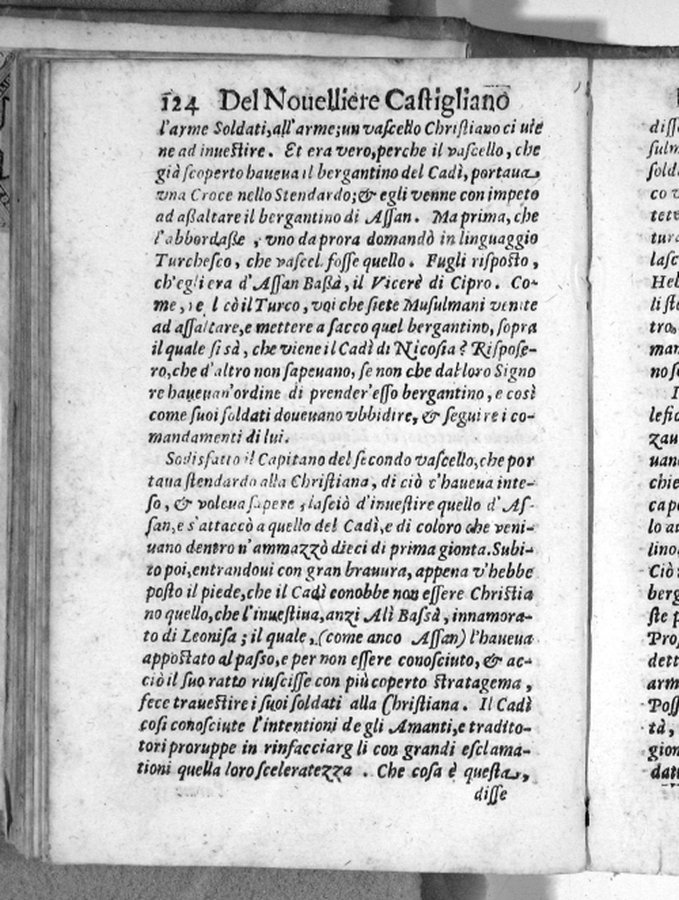 124 Del Nouelliere Castigliano
l'arme Soldati, all'arme; un vascello Christiano ci uie
ne ad inuestire. Et era vero, perche il vascello, che
già scoperto haueua il bergantino del Cadì, portaua
vna Croce nello Stendardo; & egli venne con impeto
ad assaltare il bergantino di Assan. Ma prima, che
l'abbordasse, vno da prora domandò in linguaggio
Turchesco, che vascel fosse quello. Fugli risposto,
ch'egli era d'Assan Bassà, il Vicerè di Cipro. Co-
me, il Turco, voi che siete Musulmani venite
ad assaltare, e mettere a sacco quel bergantino, sopra
il quale si sà, che viene il Cadì di Nicosia? Rispose-
ro, che d'altro non sapeuano, se non che dal loro Signo
re haueuan'ordine di prender'esso bergantino, e così
come suoi soldati doueuano vbbidire, & seguire i co-
mandamenti di lui.
Sodisfatto il Capitano del secondo vascello, che por
taua stendardo alla Christiana, di ciò c'haueua inte-
so, & voleua sapere, lasciò d'inuestire quello d'As-
san, e s'attaccò a quello del Cadì, e di coloro che veni-
uano dentro n'ammazzò dieci di prima gionta. Subi-
to poi, entrandoui con gran brauura, appena v'hebbe
posto il piede, che il Cadì conobbe non essere Christia
no quello, che l'inuestiua, anzi Alì Bassà, innamora-
to di Leonisa; il quale, (come anco Assan) l'haueua
appostato al passo, e per non essere conosciuto, & ac-
ciò il suo ratto riuscisse con più coperto stratagema,
fece trauestire i suoi soldati alla Christiana. Il Cadì
cosi conosciute l'intentioni de gli Amanti, e tradito-
tori proruppe in rinfacciar gli con grandi esclama-
tioni quella loro sceleratezza. Che cosa è questa,
disse
diss
sulm
solda
co v
tett
tura
lasc
Heb
li sto
tro,
man
no s
I
lefic
zau
uano
chie
capo
lo au
lino
Ciò
berg
ste p
Pros
dett
arm
Poss
tà,
gion
dat